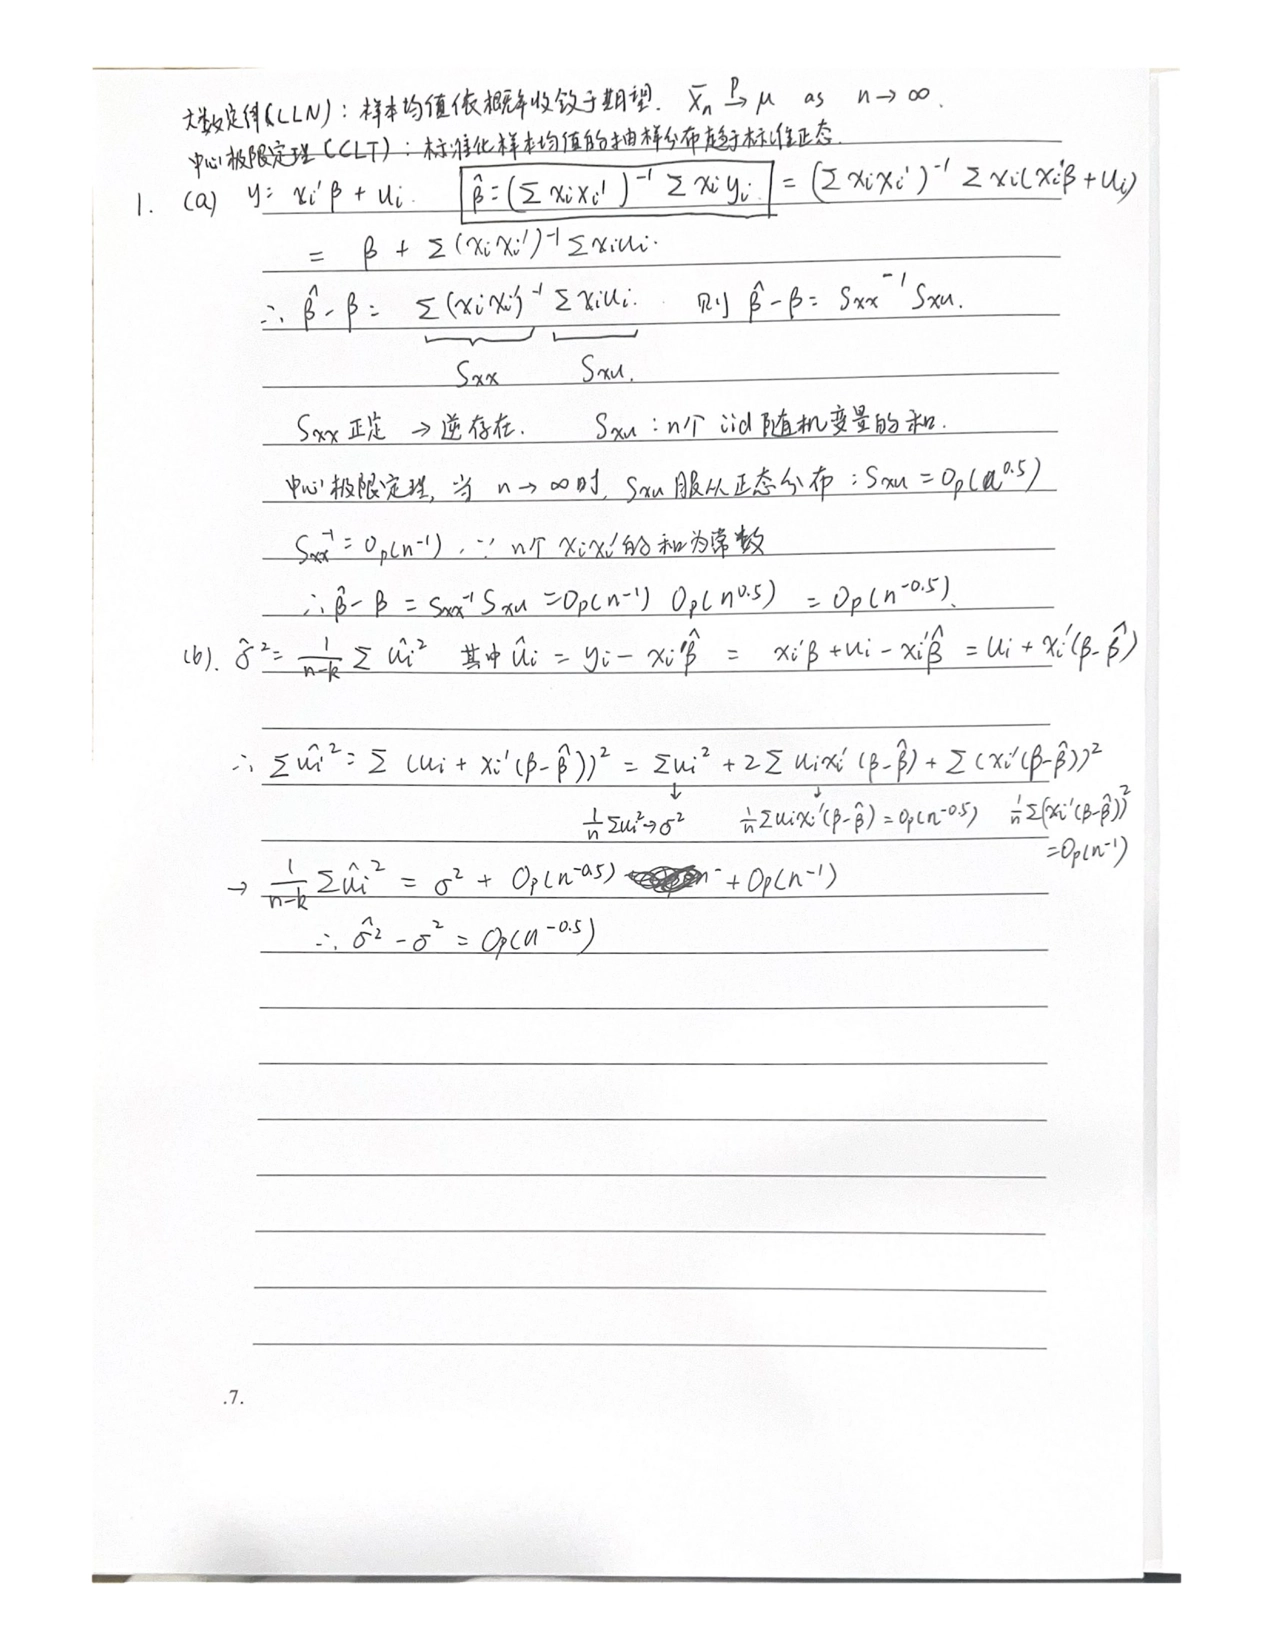 大数定律(LLN)：样本均值依概率收敛于期望. X̄n →p μ as n→∞.
中心极限定理(CLT)：标准化样本均值的抽样分布趋于标准正态.
1. (a) y= xi'β + ui. β̂=(Σ xixi')⁻¹ Σ xiyi. = (Σ xixi')⁻¹ Σ xi(xi'β+ui)
= β + Σ(xixi')⁻¹Σxiui.
∴ β̂-β= Σ(xixi')⁻¹ Σxiui. 则 β̂-β= Sxx⁻¹Sxu.
Sxx Sxu.
Sxx正定 → 逆存在. Sxu：n个iid随机变量的和.
中心极限定理, 当 n→∞时, Sxu服从正态分布：Sxu=Op(n^0.5)
Sxx⁻¹=Op(n⁻¹), ∵ n个xixi'的和为常数
∴ β̂-β = Sxx⁻¹Sxu =Op(n⁻¹) Op(n^0.5) = Op(n^-0.5).
(b). σ̂²= 1/(n-k) Σ ûi² 其中 ûi = yi - xi'β̂ = xi'β+ui-xi'β̂ = ui+xi'(β-β̂)
∴ Σûi²= Σ (ui + xi'(β-β̂))² = Σui² + 2Σ uixi'(β-β̂) + Σ(xi'(β-β̂))²
↓ ↓
1/n Σui²→σ² 1/n Σuixi'(β-β̂)=Op(n^-0.5) 1/n Σ(xi'(β-β̂))²
=Op(n⁻¹)
→ 1/(n-k) Σûi² = σ² + Op(n^-0.5) + Op(n⁻¹)
∴ σ̂²-σ² = Op(n^-0.5)
.7.